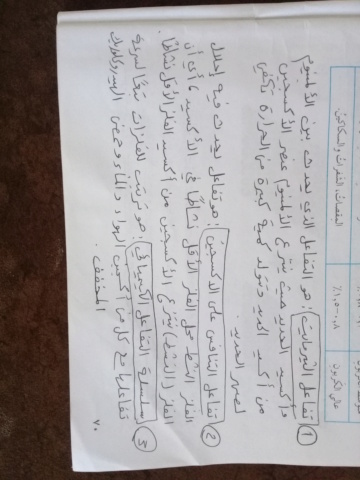 المقصات، الشفرات والسكاكين
عالي الكربون
① تفاعل الثرمايت: هو التفاعل الذي يحدث بين الألمنيوم
وأكسيد الحديد حيث ينتزع الألمنيوم عنصر الأكسجين
من أكسيد الحديد وتولد كمية كبيرة من الحرارة تكفي
لصهر الحديد.
② تفاعل التنافس على الأكسجين: هو تفاعل يحدث فيه إحلال
الفلز النشط محل الفلز الأقل نشاطًا في الأكسيد، أي أن
الفلز (النشط) ينتزع الأكسجين من أكسيد الفلز الأقل نشاطًا.
③ سلسلة التفاعل الكيميائي: هو ترتيب للفلزات تبعًا لسرعة
تفاعلها مع كل من أكسجين الهواء والماء وحمض الهيدروكلوريك
المخفف.
٧٠